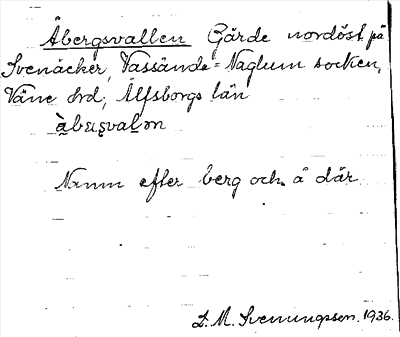 Åbergsvallen Gärde nordöst på
Svenäcker, Vassände-Naglum socken,
Väne hrd, Älfsborgs län
Namn efter berg och å där
L. M. Svenungsson. 1936.